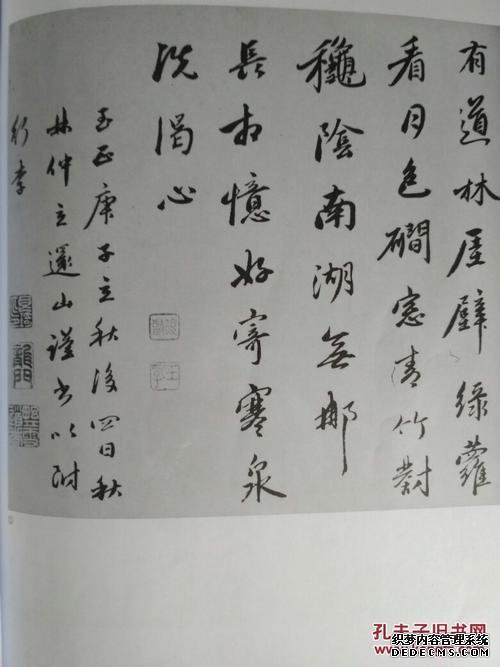 有道林屋壁綠蘿
看月色磵窓清竹對
龝陰南湖無挪
長相憶好寄寒泉
洗渴心
至正庚子立秋後四日秋
林仲立還山謹書以附
行李
孔夫子旧书网
织梦内容管理系统
DEDECMS.COM